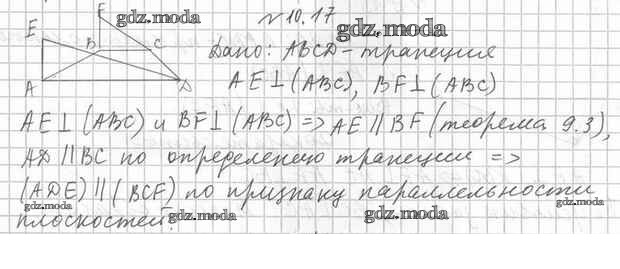 F gdz.moda
№10.17
gdz.moda
E B C
Дано: ABCD-трапеция
A D
AE⊥(ABC), BF⊥(ABC)
AE⊥(ABC) и BF⊥(ABC) => AE∥BF (теорема 9.3),
AD∥BC по определению трапеции =>
(ADE)∥(BCF) по признаку параллельности
gdz.moda gdz.moda
плоскостей.
gdz.moda gdz.moda